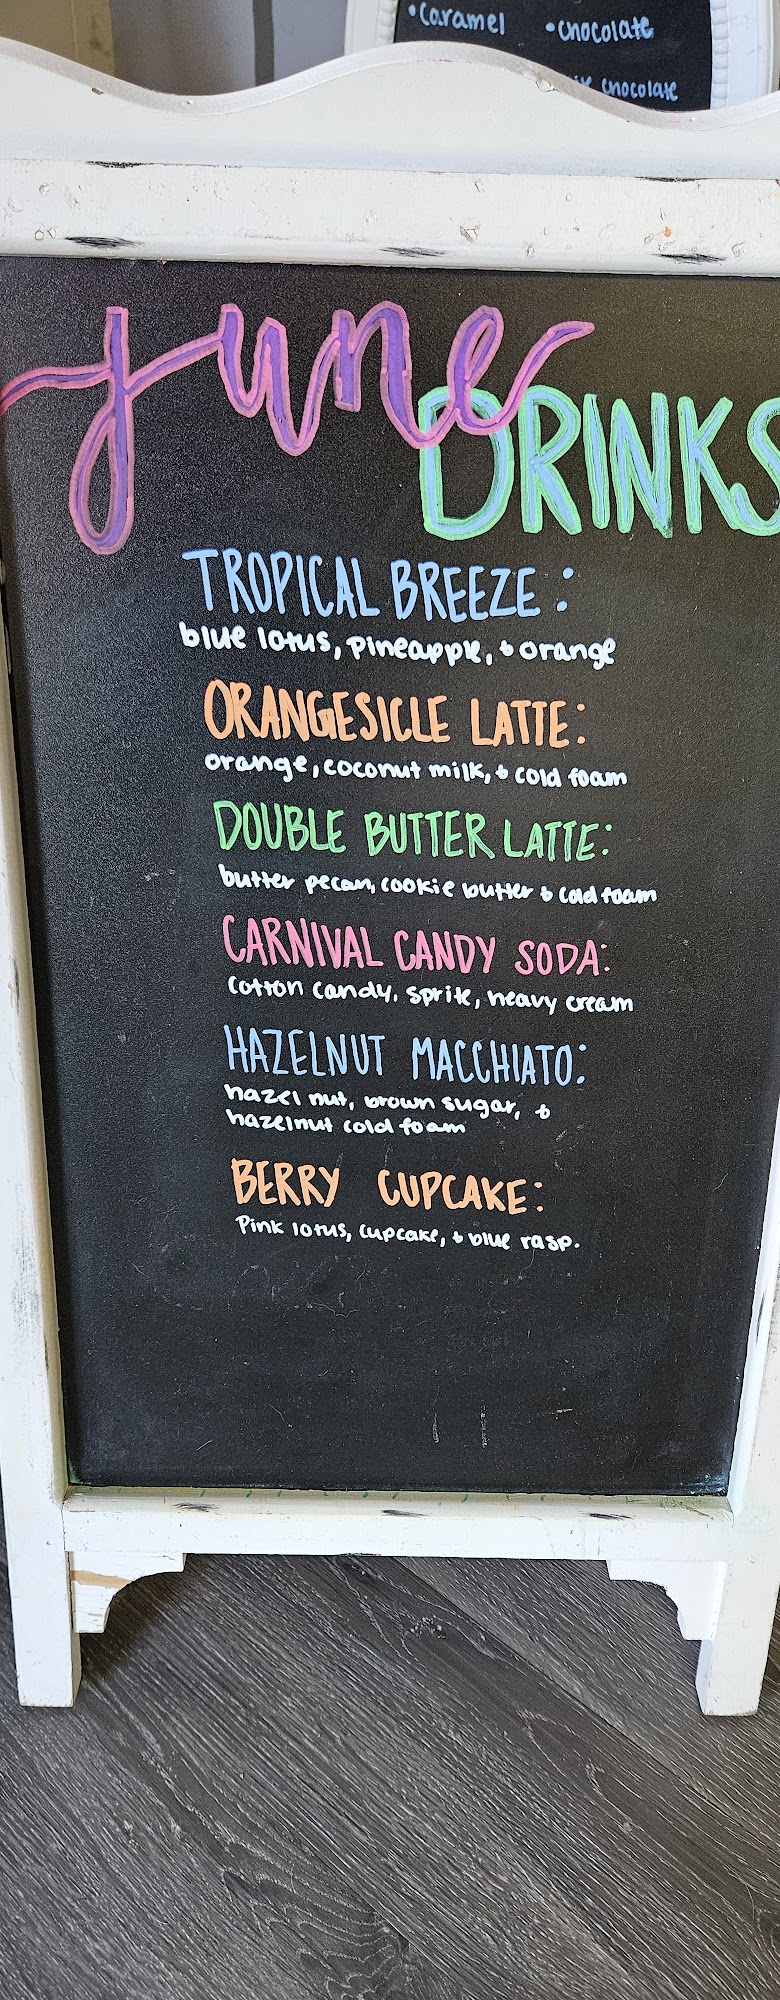 •Caramel •Chocolate
chocolate
June
DRINKS
TROPICAL BREEZE:
blue lotus, pineapple, & orange
ORANGESICLE LATTE:
orange, coconut milk, & cold foam
DOUBLE BUTTER LATTE:
butter pecan, cookie butter & cold foam
CARNIVAL CANDY SODA:
cotton candy, sprite, heavy cream
HAZELNUT MACCHIATO:
hazel nut, brown sugar, &
hazelnut cold foam
BERRY CUPCAKE:
Pink lotus, cupcake, & blue rasp.